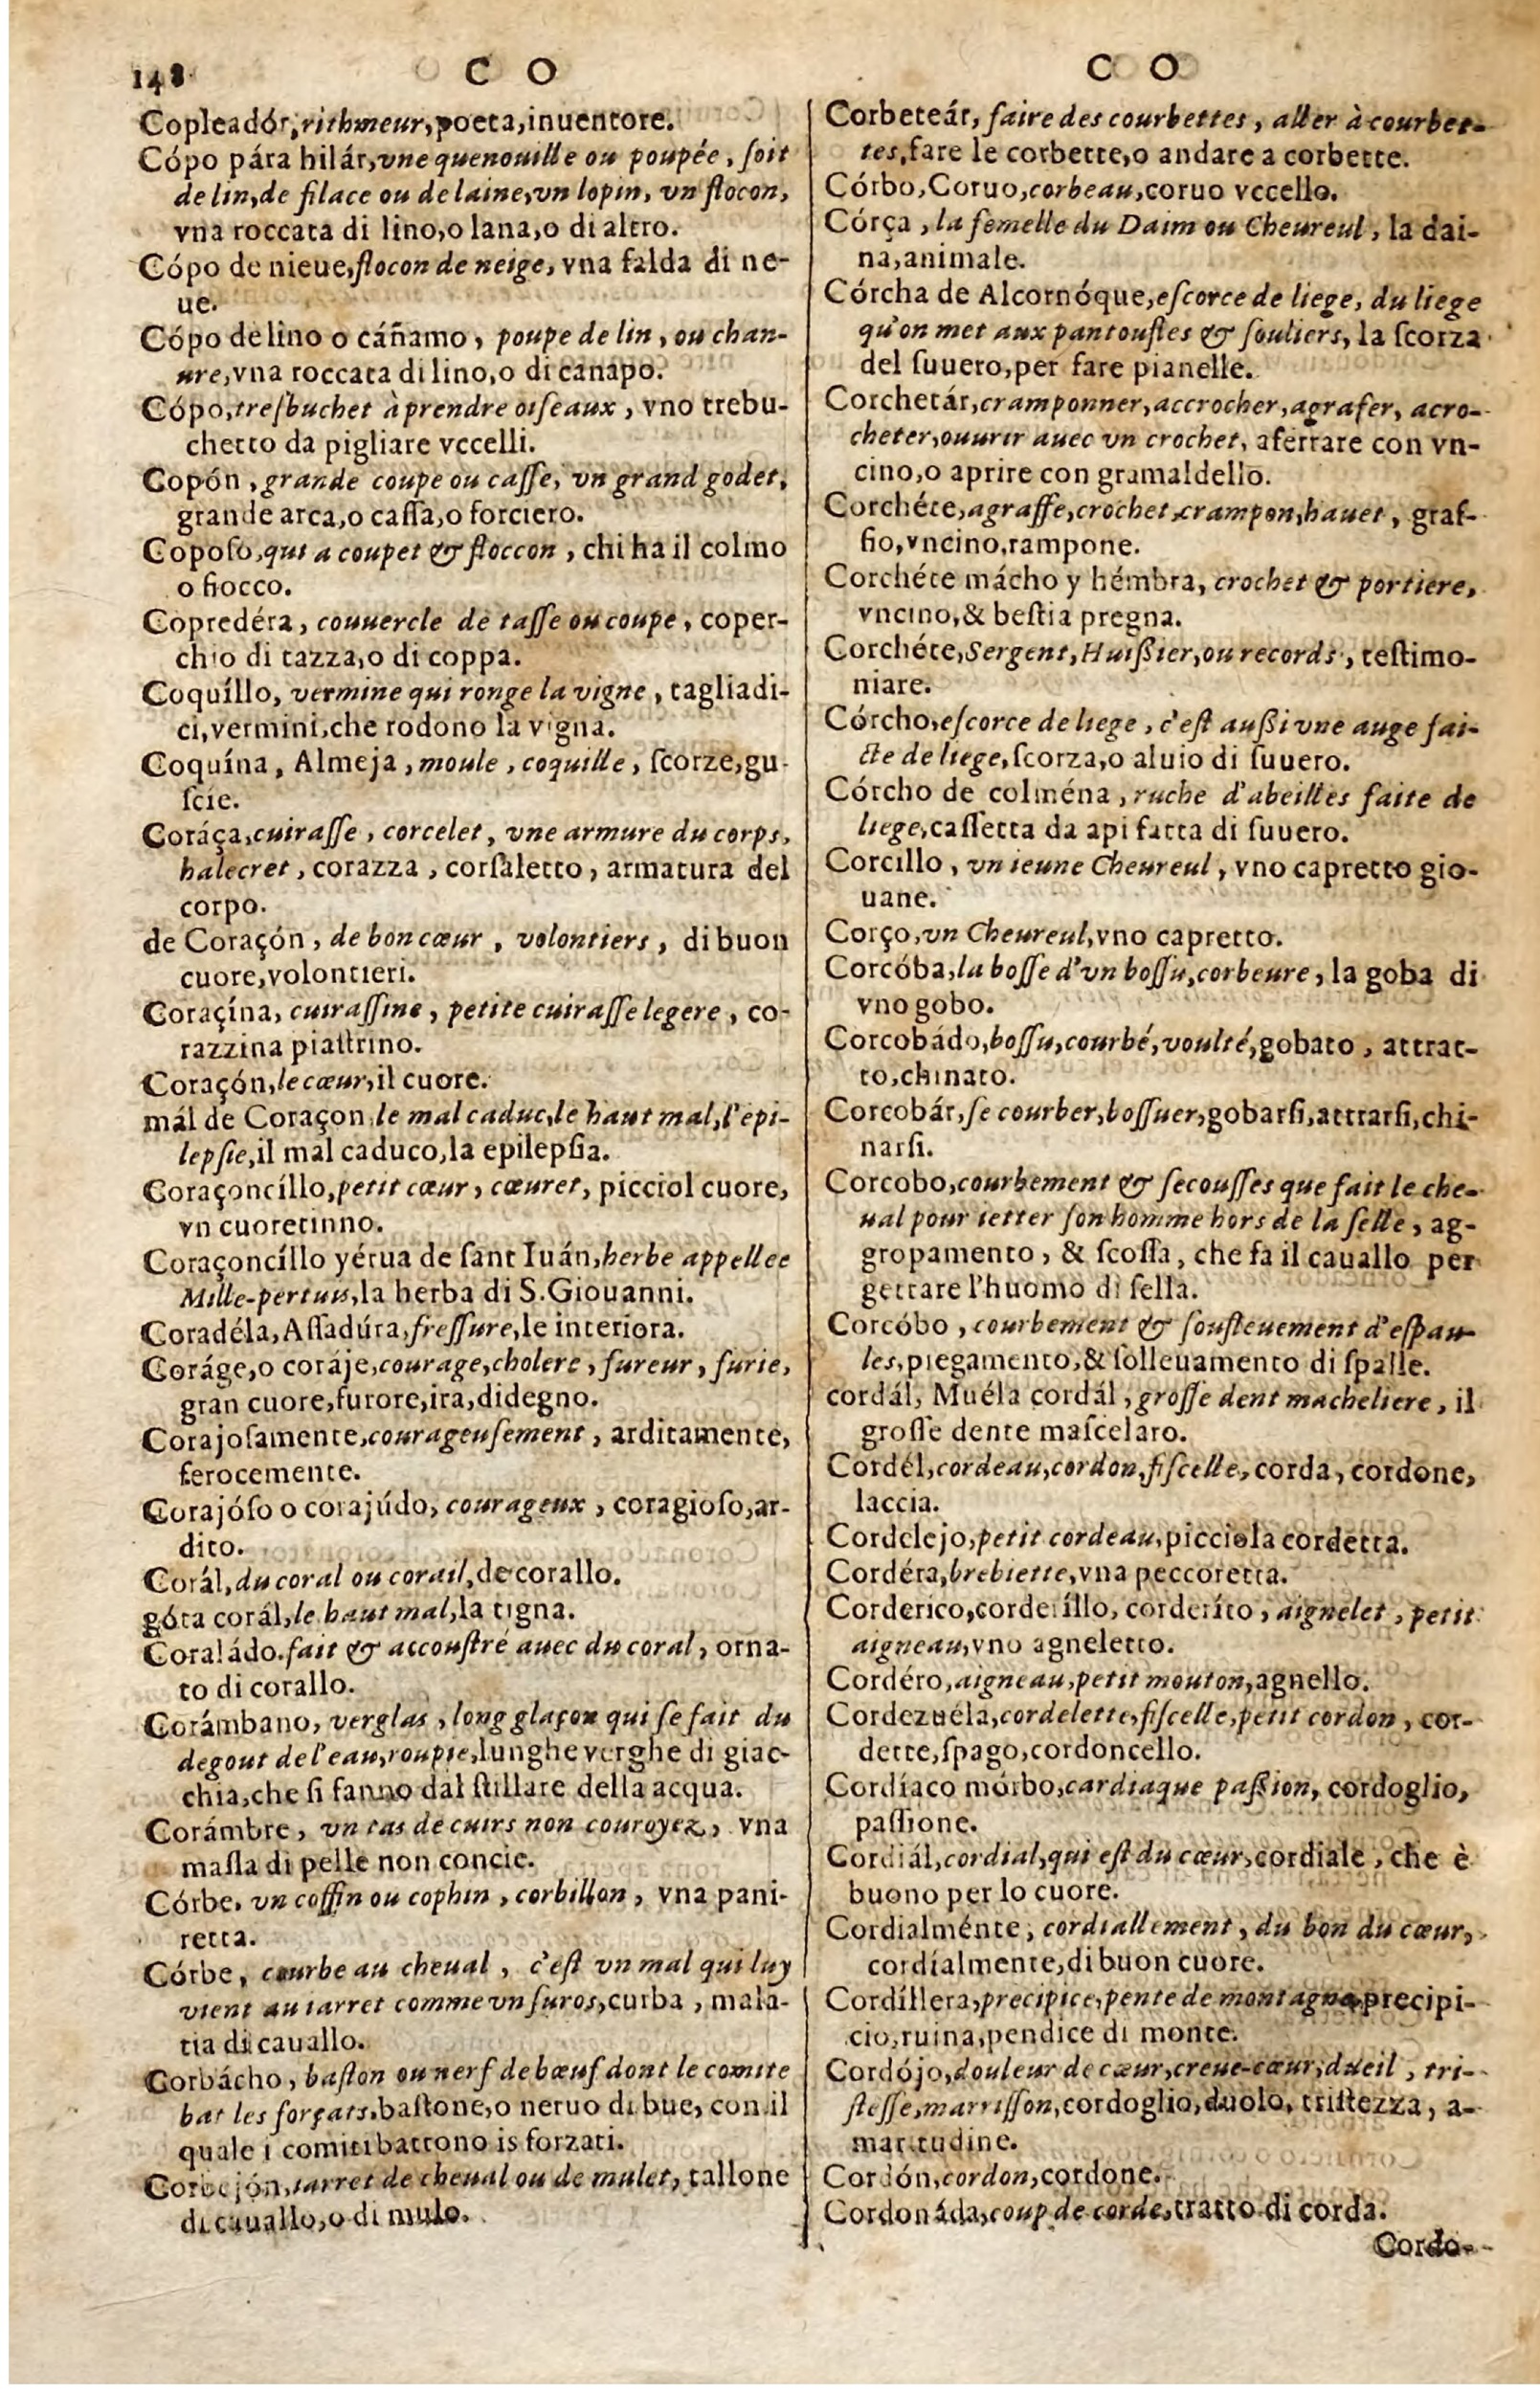 148
C O
Copleadór, rithmeur, poeta, inuentore.
Cópo pára hilár, vne quenouille ou poupée, ſoit
de lin, de filace ou de laine, vn lopin, vn flocon,
vna roccata di lino, o lana, o di altro.
Cópo de nieue, flocon de neige, vna falda di ne-
ue.
Cópo de lino o cáñamo, poupe de lin, ou chan-
ure, vna roccata di lino, o di canapo.
Cópo, treſbuchet à prendre oiſeaux, vno trebu-
chetto da pigliare vccelli.
Copón, grande coupe ou caſſe, vn grand godet,
grande arca, o caſſa, o forciero.
Copoſo, qui a coupet & floccon, chi ha il colmo
o fiocco.
Copredéra, couuercle de taſſe ou coupe, coper-
chio di tazza, o di coppa.
Coquíllo, vermine qui ronge la vigne, tagliadi-
ci, vermini, che rodono la vigna.
Coquína, Almeja, moule, coquille, ſcorze, gu-
ſcie.
Coráça, cuiraſſe, corcelet, vne armure du corps,
halecret, corazza, corſaletto, armatura del
corpo.
de Coraçón, de bon cœur, volontiers, di buon
cuore, volontieri.
Coraçína, cuiraſſine, petite cuiraſſe legere, co-
razzina piattrino.
Coraçón, le cœur, il cuore.
mál de Coraçon, le mal caduc, le haut mal, l'epi-
lepſie, il mal caduco, la epilepſia.
Coraçoncíllo, petit cœur, cœuret, picciol cuore,
vn cuoretinno.
Coraçoncíllo yérua de ſant Iuán, herbe appellee
Mille-pertuis, la herba di S. Giouanni.
Coradéla, Aſſadúra, freſſure, le interiora.
Coráge, o coráje, courage, cholere, fureur, furie,
gran cuore, furore, ira, didegno.
Corajoſamente, courageuſement, arditamente,
ferocemente.
Corajóſo o corajúdo, courageux, coragioſo, ar-
dito.
Corál, du coral ou corail, de corallo.
góta corál, le haut mal, la tigna.
Coraládo. fait & accouſtré auec du coral, orna-
to di corallo.
Corámbano, verglas, long glaçon qui ſe fait du
degout de l'eau, roupie, lunghe verghe di giac-
chia, che ſi fanno dal ſtillare della acqua.
Corámbre, vn tas de cuirs non couroyez, vna
maſſa di pelle non concie.
Córbe, vn coffin ou cophin, corbillon, vna pani-
retta.
Córbe, courbe au cheual, c'eſt vn mal qui luy
vient au iarret comme vn ſuros, curba, mala-
tia di cauallo.
Corbácho, baſton ou nerf de bœuf dont le comite
bat les forçats, baſtone, o neruo di bue, con il
quale i comiti battono is forzati.
Corbejón, iarret de cheual ou de mulet, tallone
di cauallo, o di mulo.
C O
Corbeteár, faire des courbettes, aller à courbet-
tes, fare le corbette, o andare a corbette.
Córbo, Coruo, corbeau, coruo vccello.
Córça, la femelle du Daim ou Cheureul, la dai-
na, animale.
Córcha de Alcornóque, eſcorce de liege, du liege
qu'on met aux pantoufles & ſouliers, la ſcorza
del ſuuero, per fare pianelle.
Corchetár, cramponner, accrocher, agrafer, acro-
cheter, ouurir auec vn crochet, aferrare con vn-
cino, o aprire con gramaldello.
Corchéte, agraffe, crochet, crampon, hauet, graf-
fio, vncino, rampone.
Corchéte mácho y hémbra, crochet & portiere,
vncino, & beſtia pregna.
Corchéte, Sergent, Huiſſier, ou records, teſtimo-
niare.
Córcho, eſcorce de liege, c'eſt auſſi vne auge fai-
cte de liege, ſcorza, o aluio di ſuuero.
Córcho de colména, ruche d'abeilles faite de
liege, caſſetta da api fatta di ſuuero.
Corcillo, vn ieune Cheureul, vno capretto gio-
uane.
Corço, vn Cheureul, vno capretto.
Corcóba, la boſſe d'vn boſſu, corbeure, la goba di
vno gobo.
Corcobádo, boſſu, courbé, voulté, gobato, attrat-
to, chinato.
Corcobár, ſe courber, boſſuer, gobarſi, attrarſi, chi-
narſi.
Corcobo, courbement & ſecouſſes que fait le che-
ual pour ietter ſon homme hors de la ſelle, ag-
gropamento, & ſcoſſa, che fa il cauallo per
gettare l'huomo di ſella.
Corcóbo, courbement & ſouſleuement d'eſpau-
les, piegamento, & ſolleuamento di ſpalle.
cordál, Muéla cordál, groſſe dent macheliere, il
groſſe dente maſcelaro.
Cordél, cordeau, cordon, fiſcelle, corda, cordone,
laccia.
Cordelejo, petit cordeau, picciola cordetta.
Cordéra, brebiette, vna peccoretta.
Corderico, corderíllo, corderíto, aignelet, petit
aigneau, vno agneletto.
Cordéro, aigneau, petit mouton, agnello.
Cordezuéla, cordelette, fiſcelle, petit cordon, cor-
dette, ſpago, cordoncello.
Cordíaco mórbo, cardiaque paſſion, cordoglio,
paſſione.
Cordiál, cordial, qui eſt du cœur, cordiale, che è
buono per lo cuore.
Cordialménte, cordiallement, du bon du cœur,
cordíalmente, di buon cuore.
Cordíllera, precipice, pente de montagne, precipi-
cio, ruina, pendice di monte.
Cordójo, douleur de cœur, creue-cœur, dueil, tri-
ſteſſe, marriſſon, cordoglio, duolo, triſtezza, a-
maritudine.
Cordón, cordon, cordone.
Cordonáda, coup de corde, tratto di corda.
Cordo-